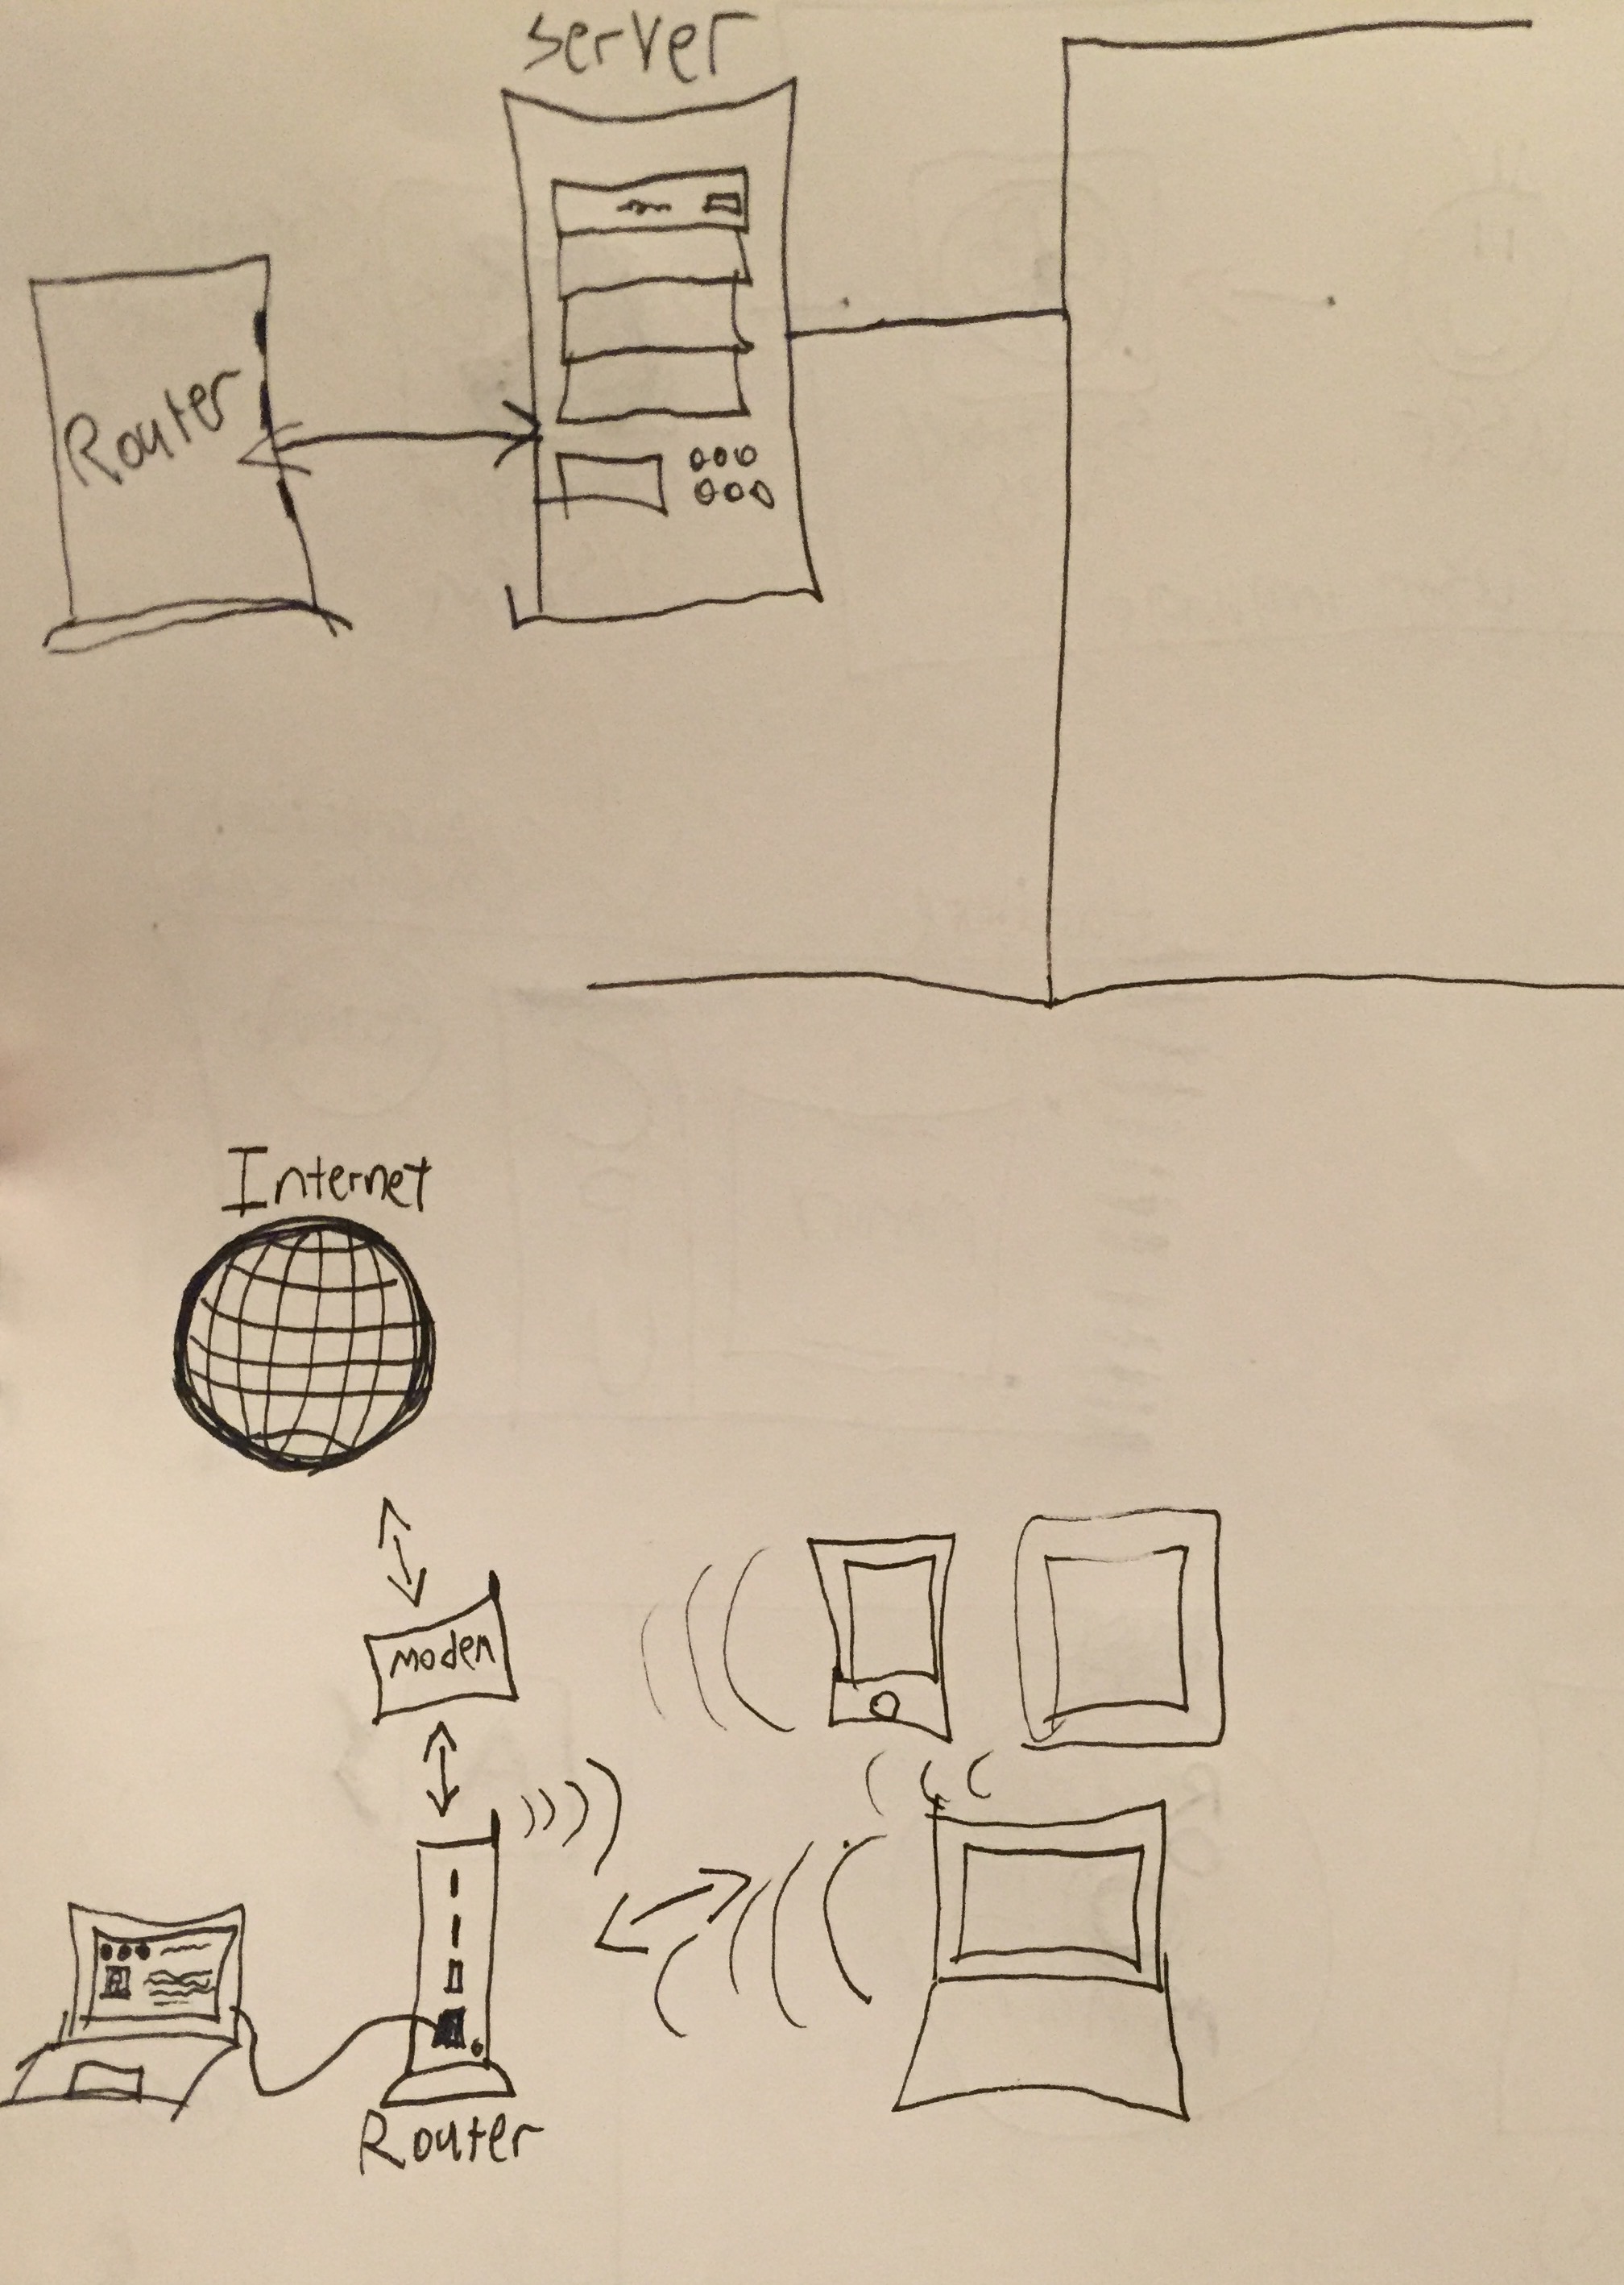 server
Router
Internet
moden
Router